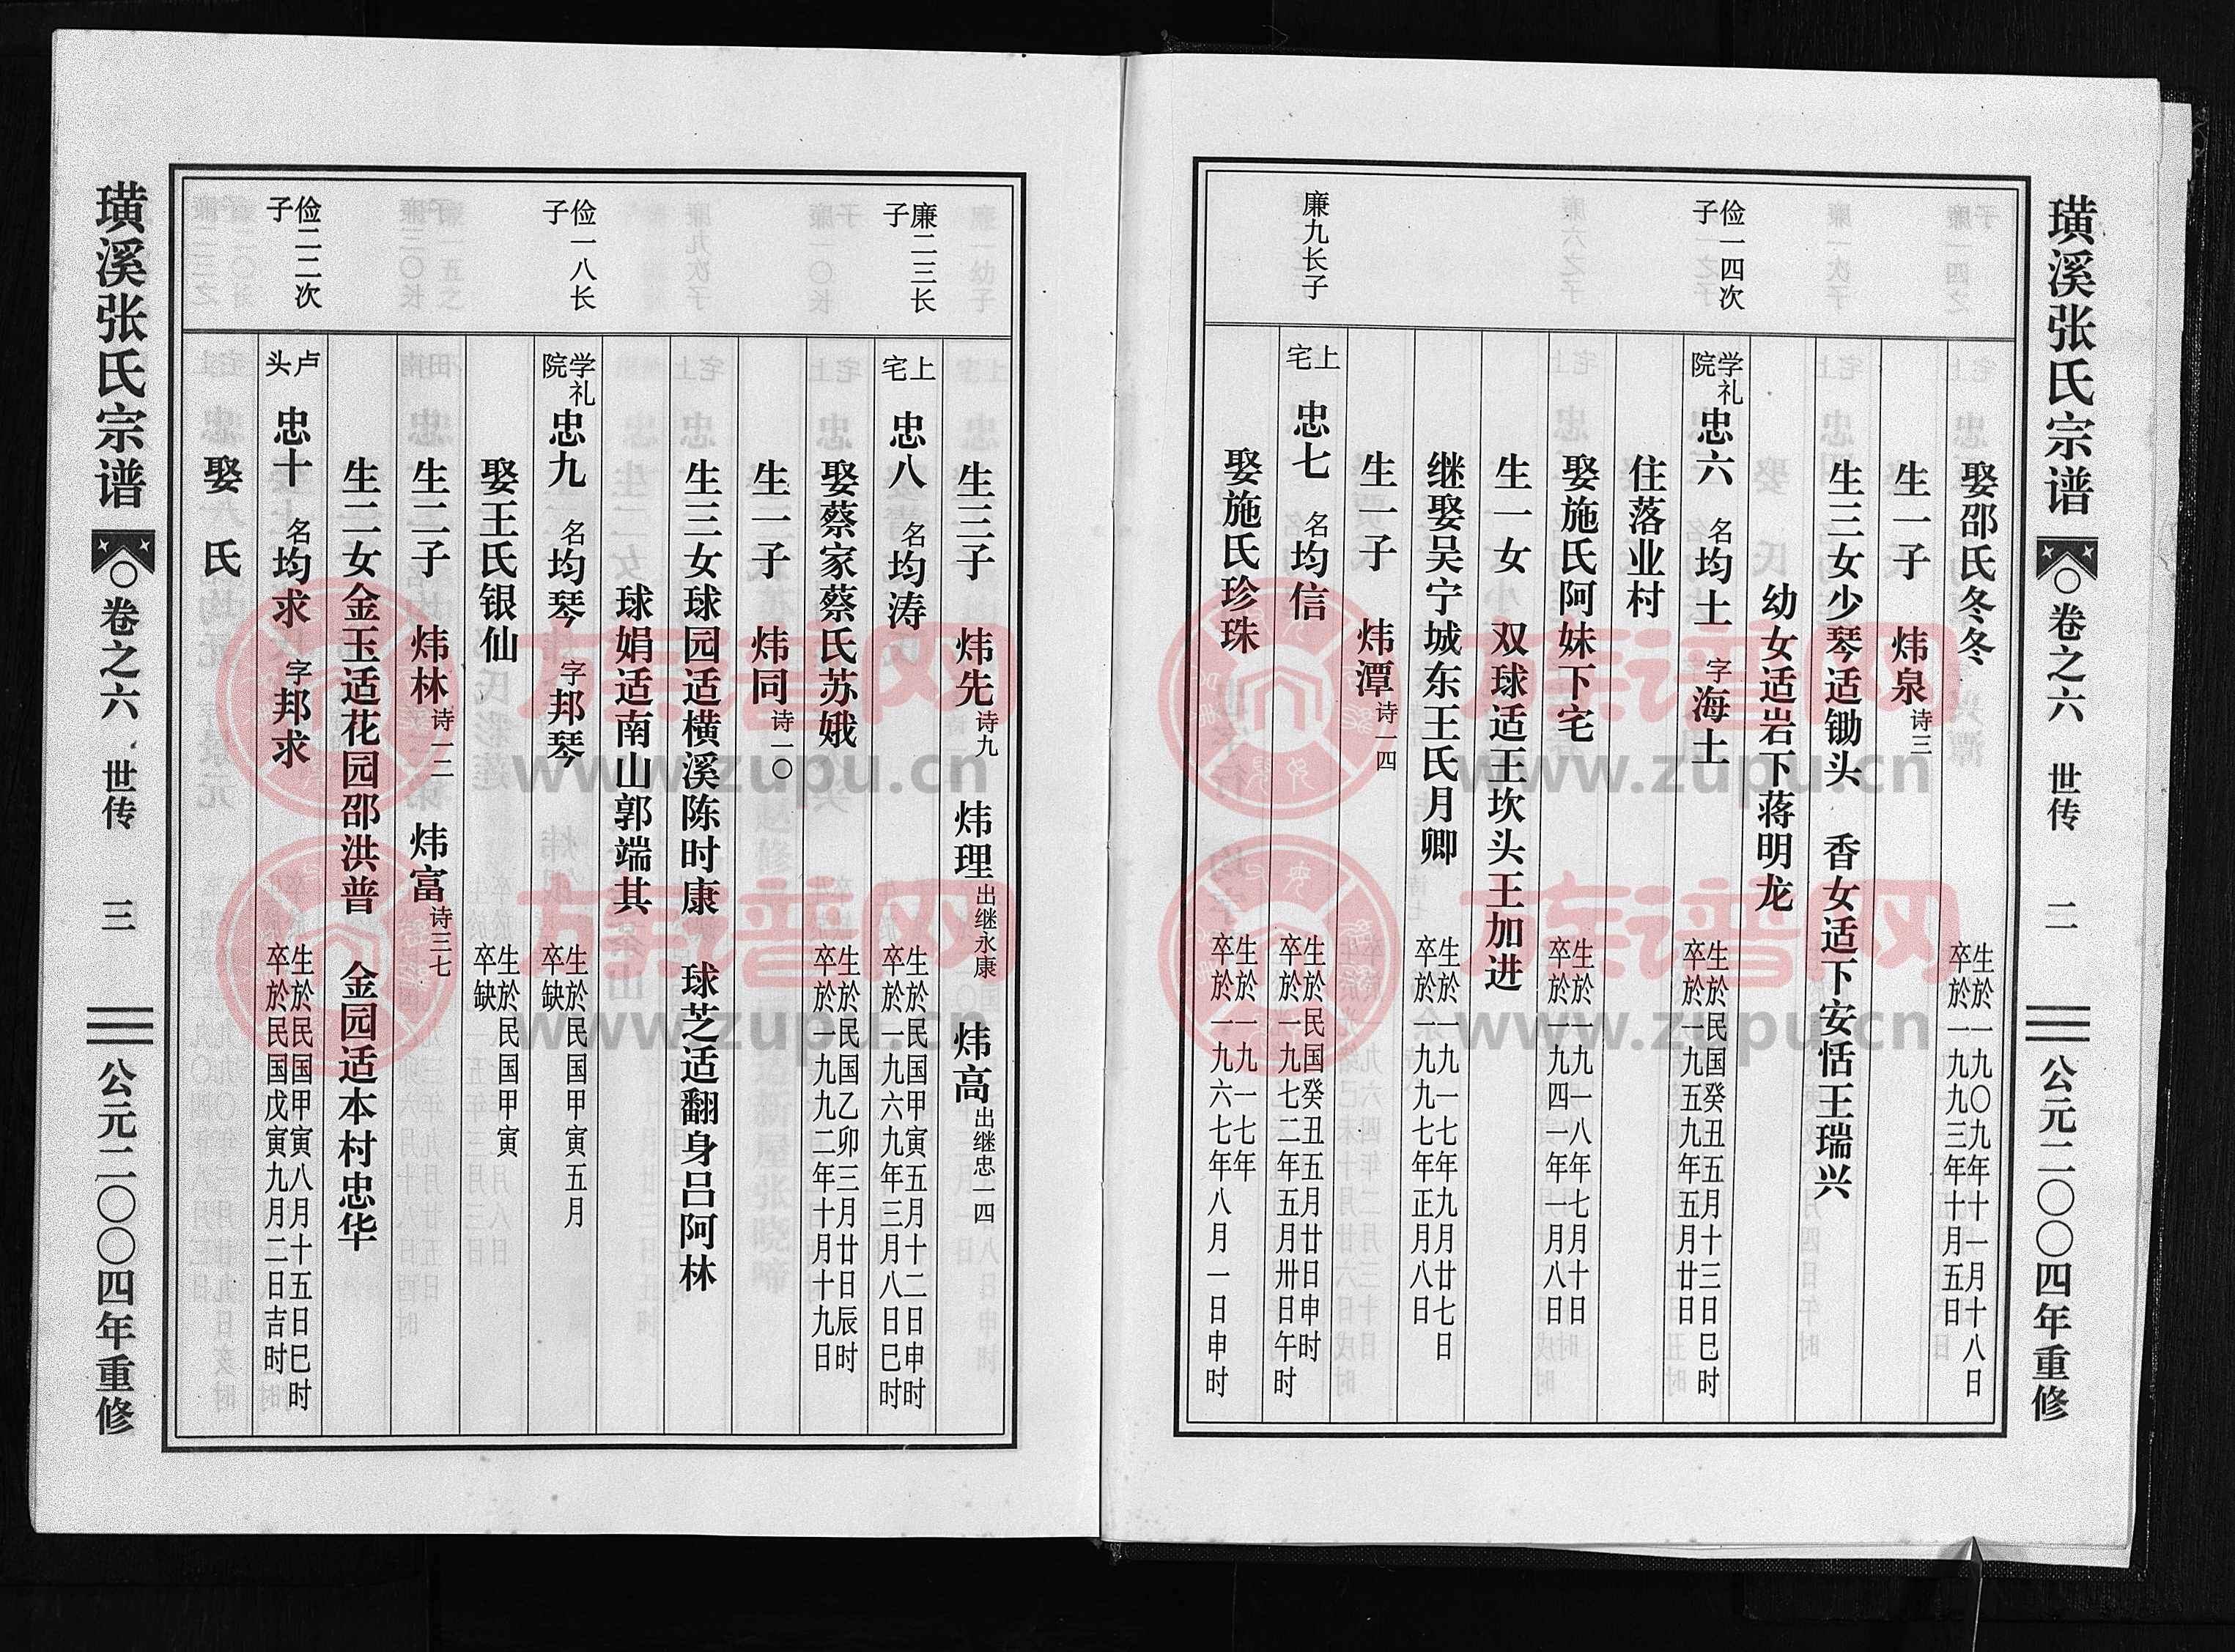 璜溪张氏宗谱 卷之六 世传 二 公元二〇〇四年重修
娶邵氏冬冬 生於一九〇九年十一月十八日 卒於一九九三年十月五日
生一子 炜泉 诗三
生三女少琴适锄头 香女适下安恬王瑞兴
幼女适岩下蒋明龙
俭一四次子 学礼院 忠六 名均土 字海土 生於民国癸丑五月十三日巳时 卒於一九五九年五月廿日
住落业村
娶施氏阿妹下宅 生於一九一八年七月十日 卒於一九四一年一月八日
生一女 双球适王坎头王加进
继娶吴宁城东王氏月卿 生於一九一七年九月廿七日 卒於一九九七年正月八日
生一子 炜潭 诗一四
廉九长子 上宅 忠七 名均信 生於民国癸丑五月廿日申时 卒於一九七二年五月卅日午时
娶施氏珍珠 生於一九一七年 卒於一九六七年八月一日申时
生三子 炜先 诗九 炜理 出继永康 炜高 出继忠一四
廉二三长子 上宅 忠八 名均涛 生於民国甲寅五月十二日申时 卒於一九六九年三月八日巳时
娶蔡家蔡氏苏娥 生於民国乙卯三月廿日辰时 卒於一九九二年十月十九日
生一子 炜同 诗一〇
生三女球园适横溪陈时康 球芝适翻身吕阿林
球娟适南山郭端其
俭一八长子 学礼院 忠九 名均琴 字邦琴 生於民国甲寅五月 卒缺
娶王氏银仙 生於民国甲寅 卒缺
生二子 炜林 诗一二 炜富 诗三七
生二女金玉适花园邵洪普 金园适本村忠华
俭二二次子 卢头 忠十 名均求 字邦求 生於民国甲寅八月十五日巳时 卒於民国戊寅九月二日吉时
娶 氏
璜溪张氏宗谱 卷之六 世传 三 公元二〇〇四年重修
族谱网
www.zupu.cn
族谱网
www.zupu.cn
族谱网
www.zupu.cn
族谱网
www.zupu.cn